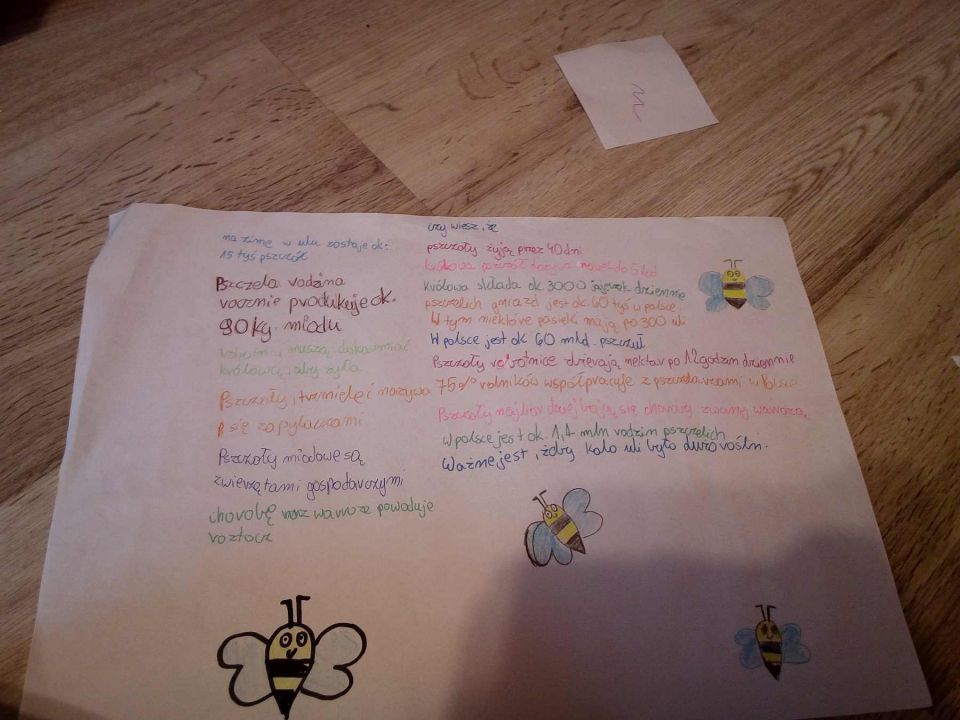 na zimę w ulu zostaje ok.
15 tyś pszczół
Pszczela rodzina
rocznie produkuje ok.
90 kg. miodu
Robotnice muszą dokarmiać
królowę, aby żyła
Pszczoły, trzmiele i nazywa
się zapylaczami
Pszczoły miodowe są
zwierzętami gospodarczymi
chorobę warroze powoduje
roztocz
czy wiesz, że
pszczoły żyją przez 40 dni
królowa pszczół dożywa nawet do 5 lat
królowa składa ok 3000 jajeczek dziennie
pszczelich gniazd jest ok 60 tyś w polsce,
W tym niektóre pasieki mają po 300 uli
W Polsce jest ok 60 mld. pszczuł
Pszczoły robotnice zbierają nektar po 12 godzin dziennie
75% rolników współpracuje z pszczelarzami w Polsce
Pszczoły najbardziej boją się choroby zwanej warrozą
w polsce jest ok. 1,4 mln rodzin pszczelich
Ważne jest, żeby koło uli było dużo roślin.